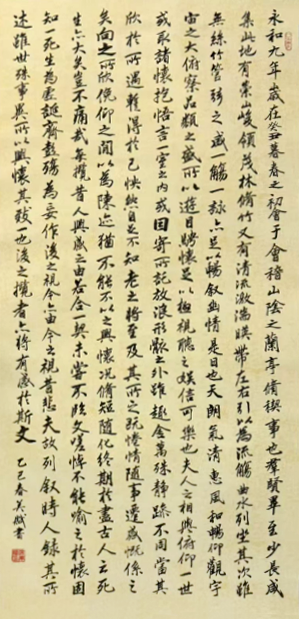 永和九年歲在癸丑暮春之初會于會稽山陰之蘭亭脩稧事也群賢畢至少長咸
集此地有崇山峻領茂林脩竹又有清流激湍暎帶左右引以為流觴曲水列坐其次雖
無絲竹管弦之盛一觴一詠亦足以暢敘幽情是日也天朗氣清惠風和暢仰觀宇
宙之大俯察品類之盛所以遊目騁懷足以極視聽之娛信可樂也夫人之相與俯仰一世
或取諸懷抱悟言一室之內或因寄所託放浪形骸之外雖趣舍萬殊靜躁不同當其
欣於所遇暫得於己快然自足不知老之將至及其所之既惓情隨事遷感慨係之
矣向之所欣俛仰之間以為陳迹猶不能不以之興懷況脩短隨化終期於盡古人云死
生亦大矣豈不痛哉每攬昔人興感之由若合一契未嘗不臨文嗟悼不能喻之於懷固
知一死生為虛誕齊彭殤為妄作後之視今亦由今之視昔悲夫故列敘時人錄其所
述雖世殊事異所以興懷其致一也後之攬者亦將有感於斯文
乙巳春吳斌書